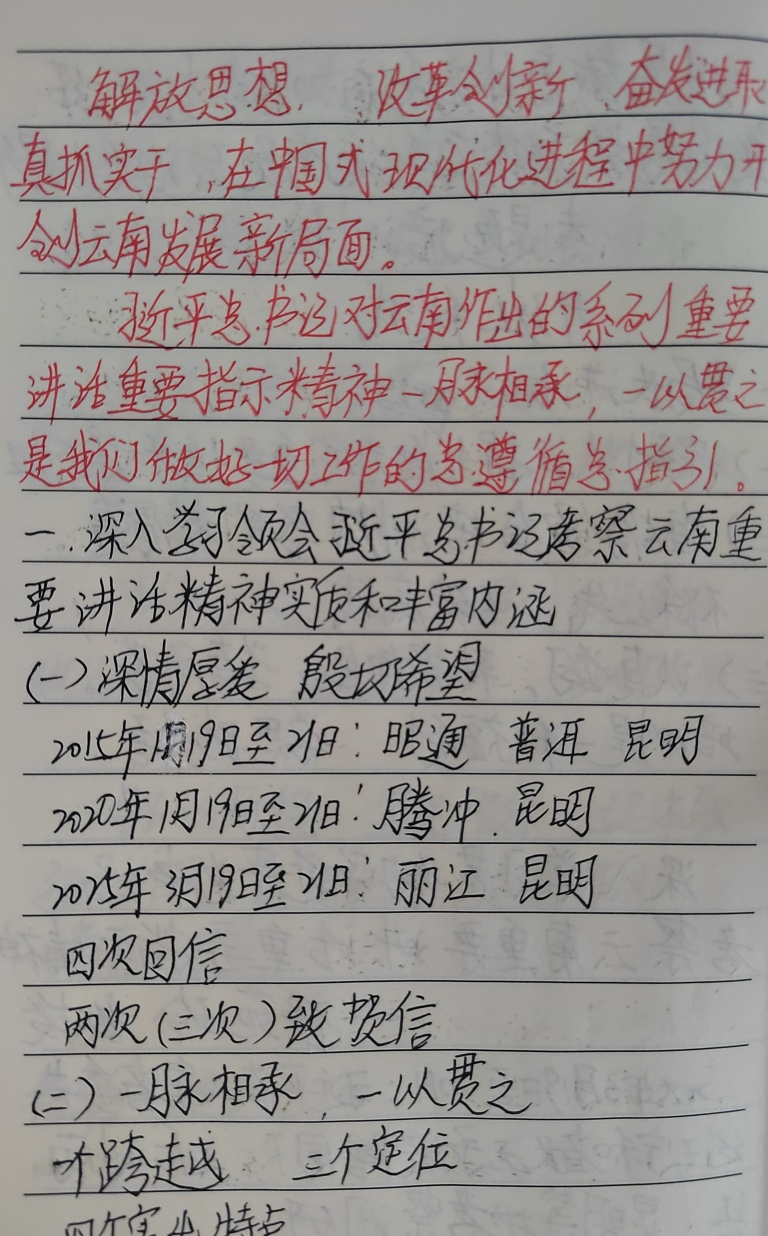 解放思想, 改革创新、奋发进取
真抓实干,在中国式现代化进程中努力开
创云南发展新局面。
习近平总书记对云南作出的系列重要
讲话重要指示精神一脉相承,一以贯之
是我们做好一切工作的总遵循总指引。
一.深入学习领会习近平总书记考察云南重
要讲话精神实质和丰富内涵
(一)深情厚爱 殷切希望
2015年1月19日至21日:昭通 普洱 昆明
2020年1月19日至21日:腾冲.昆明
2025年3月19日至21日:丽江 昆明
四次回信
两次(三次)致贺信
(二)一脉相承,一以贯之
一个跨越 三个定位
四个突出特点